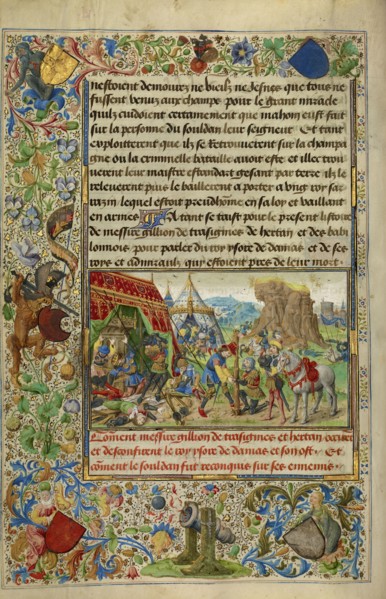 nestoient demourez ne vieilz ne Jesnes que tous ne
fussent venuz aux champz pour le grant miracle
quilz cuidoient certamement que mahom eust fait
sur la personne du souldan leur seigneur Et tant
exploitterent que ilz se retrouverent sur la champai
gne ou la criminelle bataille avoit este et illec trou
verent leur maistre estandart gesant par terre ilz le
releverent puis le baillerent a porter a ung roy sar
razin lequel estoit preudhomme en sa loy et vaillant
en armes Atant se taist pour le present listoire
de messire gillion de trasignies de hertan et des babi
lonnois pour parler du roy ysore de damas et de ses
roys et admiraulx qui estoient prez de leur mort
Coment messire gillion de trasignies et hertan
et desconfirent le roy ysore de damas et son ost Et
coment le souldan fut recouquis sur ses ennemis